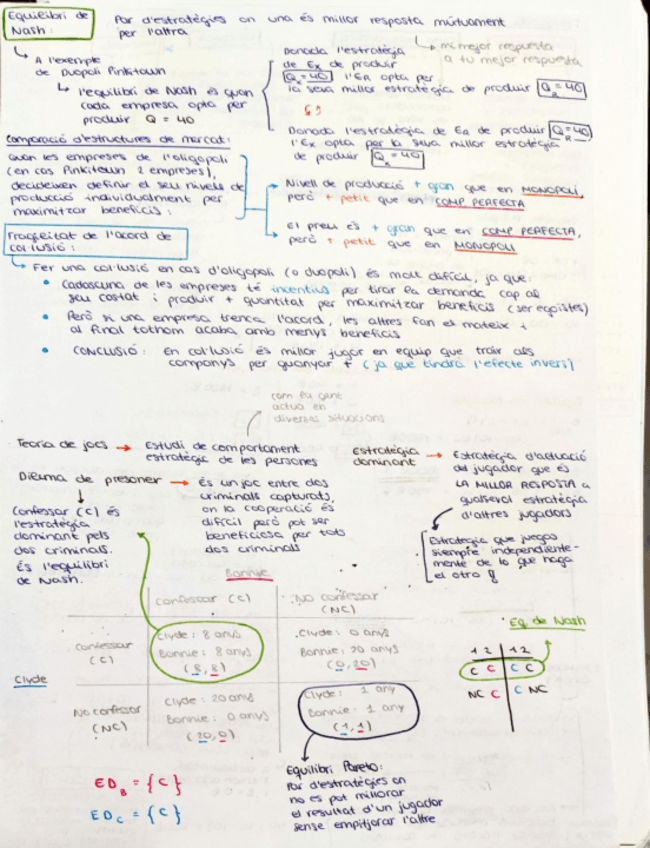 Equilibri de
Nash:
Par d'estratègies on una és millor resposta mútuament
per l'altra
mi mejor respuesta
a tu mejor respuesta
A l'exemple
de Duopoli Pinkitown
l'equilibri de Nash és quan
cada empresa opta per
produir Q = 40
Donada l'estratègia
de Ex de produir
Qx = 40 l'ER opta per
la seva millor estratègia de produir QR = 40
Donada l'estratègia de ER de produir QR = 40
l'Ex opta per la seva millor estratègia
de produir Qx = 40
Comparació d'estructures de mercat:
Quan les empreses de l'oligopoli
(en cas Pinkitown 2 empreses),
decideixen definir el seu nivell de
producció individualment per
maximitzar beneficis:
Nivell de producció + gran que en MONOPOLI,
però + petit que en COMP PERFECTA
El preu és + gran que en COMP PERFECTA,
però + petit que en MONOPOLI
Fragilitat de l'acord de
col·lusió:
Fer una col·lusió en cas d'oligopoli (o duopoli) és molt difícil, ja que:
• Cadascuna de les empreses té incentius per tirar la demanda cap al
seu costat i produir + quantitat per maximitzar beneficis (ser egoistes)
• Però si una empresa trenca l'acord, les altres fan el mateix i
al final tothom acaba amb menys beneficis
• CONCLUSIÓ: En col·lusió és millor jugar en equip que trair als
companys per guanyar + (ja que tindrà l'efecte invers)
com la gent
actua en
diverses situacions
Teoria de jocs → Estudi de comportament
estratègic de les persones
Dilema de presoner → És un joc entre dos
criminals capturats,
on la cooperació és
difícil però pot ser
beneficiosa per tots
dos criminals
Confessar (C) és
l'estratègia
dominant pels
dos criminals.
És l'equilibri
de Nash.
Estratègia
dominant → Estratègia d'actuació
del jugador que és
LA MILLOR RESPOSTA a
qualsevol estratègia
d'altres jugadors
Estrategia que juegas
siempre independiente-
mente de lo que haga
el otro
Bonnie
Confessar (C)
No confessar
(NC)
Clyde
Confessar
(C)
Clyde: 8 anys
Bonnie: 8 anys
(8,8)
Clyde: 0 anys
Bonnie: 20 anys
(0,20)
No confessar
(NC)
Clyde: 20 anys
Bonnie: 0 anys
(20,0)
Clyde: 1 any
Bonnie: 1 any
(1,1)
Eq. de Nash
1 2 1 2
C C C C
NC C C NC
EDB = {C}
EDC = {C}
Equilibri Pareto:
Par d'estratègies on
no es pot millorar
el resultat d'un jugador
sense empitjorar l'altre